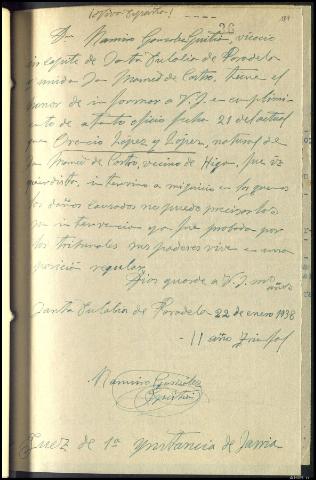 ¡Arriba España!
Dn Ramiro González Guitián, vicecio
in cápite de Santa Eulalia de Paradela
y unida San Mamed de Castro, tiene el
honor de informar a V.S. en cumplimi-
ento de atento oficio fecha 21 del actual
que Oracio López y López, natural de
San Mamed de Castro, vecino de Higon, fue iz-
quierdista, intervino a mi juicio en los
los daños causados no puedo precisarlos
su intervención ya fue probada por
los tribunales sus padres vive en una
posición regular
Dios guarde a V.S. ms años
Santa Eulalia de Paradela 22 de enero 1938
- II año Triunfal
Ramiro González
Guitián
Juez de 1ª Instancia de Sarria